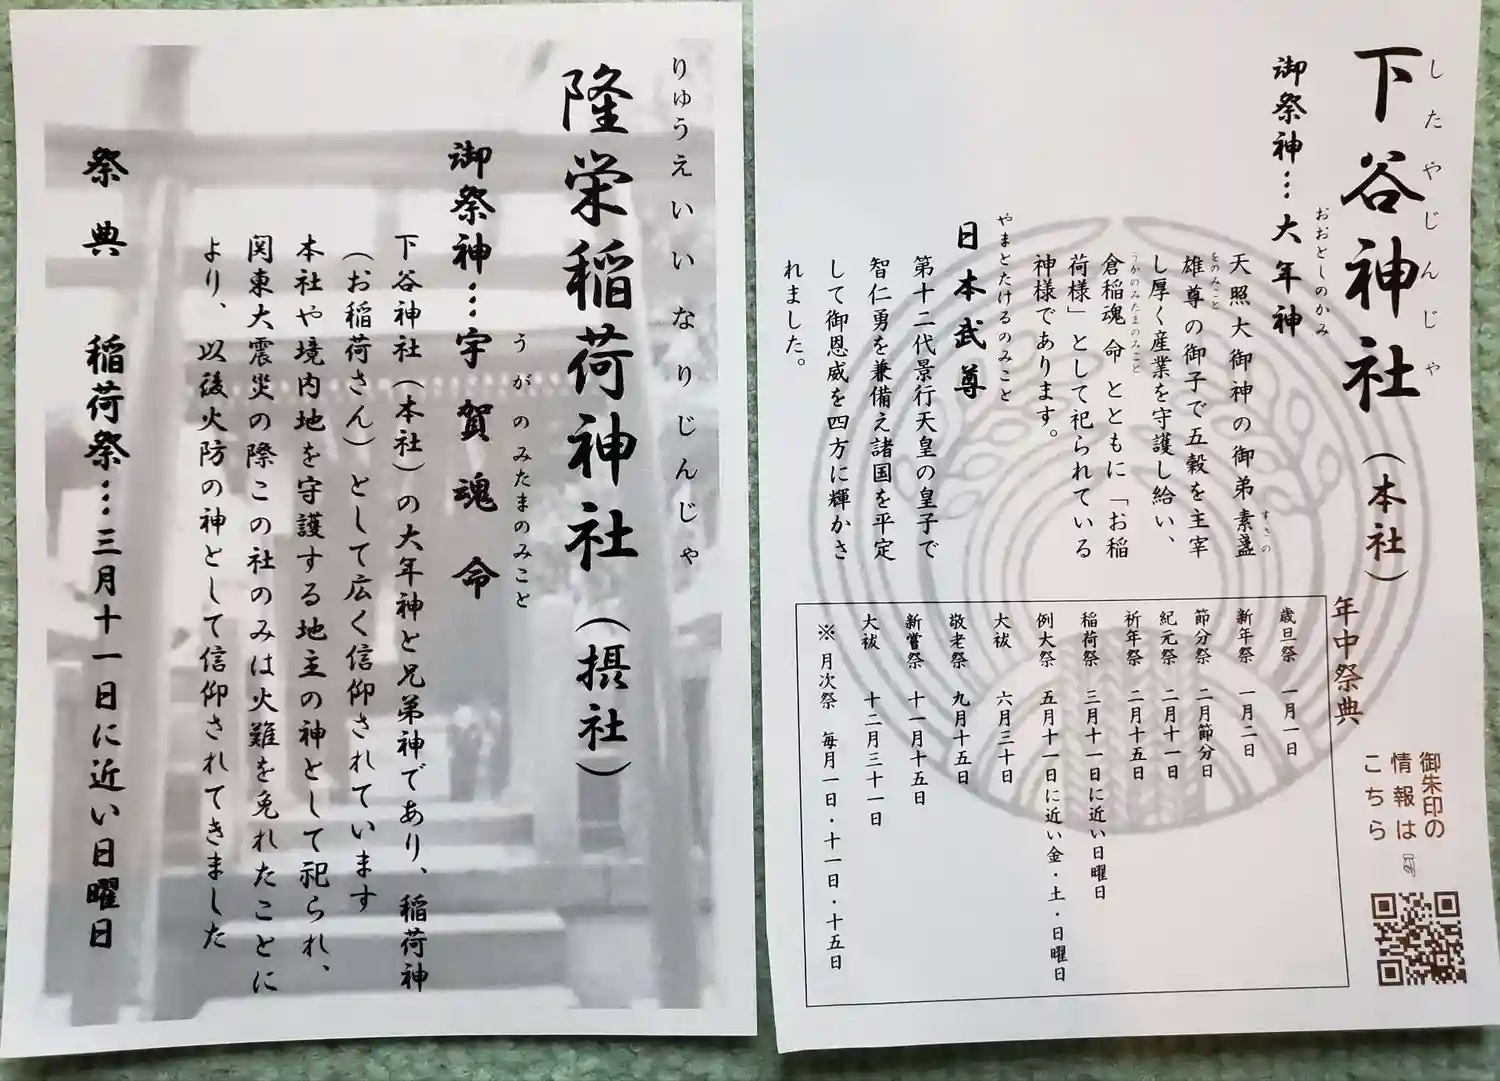 下谷神社(本社)
したやじんじゃ
御祭神…大年神
おおとしのかみ
天照大御神の御弟素盞
すさの
雄尊の御子で五穀を主宰
をのみこと
し厚く産業を守護し給い、
倉稲魂命とともに「お稲
うかのみたまのみこと
荷様」として祀られている
神様であります。
日本武尊
やまとたけるのみこと
第十二代景行天皇の皇子で
智仁勇を兼備え諸国を平定
して御恩威を四方に輝かさ
れました。
年中祭典
歳旦祭 一月一日
新年祭 一月二日
節分祭 二月節分日
紀元祭 二月十一日
祈年祭 二月十五日
稲荷祭 三月十一日に近い日曜日
例大祭 五月十一日に近い金・土・日曜日
大祓 六月三十日
敬老祭 九月十五日
新嘗祭 十一月十五日
大祓 十二月三十一日
※月次祭 毎月一日・十一日・十五日
御朱印の
情報は
こちら
隆栄稲荷神社(摂社)
りゅうえいいなりじんじゃ
御祭神…宇賀魂命
うがのみたまのみこと
下谷神社(本社)の大年神と兄弟神であり、稲荷神
(お稲荷さん)として広く信仰されています
本社や境内地を守護する地主の神として祀られ、
関東大震災の際この社のみは火難を免れたことに
より、以後火防の神として信仰されてきました
祭典 稲荷祭…三月十一日に近い日曜日